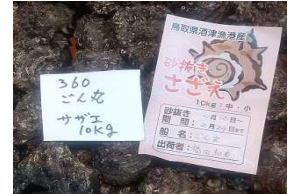 360
ごん丸
サザエ
10kg
鳥取県酒津漁港産
砂抜き
さざえ
10kg：中・小
砂抜き
期間：
船名：
出荷者：